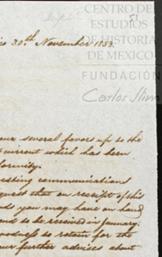 CENTRO DE
ESTUDIOS
DE HISTORIA
DE MEXICO
FUNDACIÓN
Carlos Slim
30th November 1853.
your several favors up to the
current which has been
communications
on receipt of this
you may have on hand
to be received in January
to return for the
further advices about